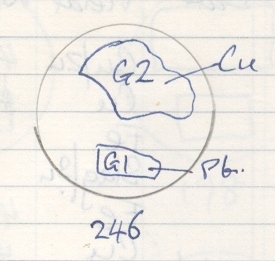 G2 Cu
G1 Pb.
246